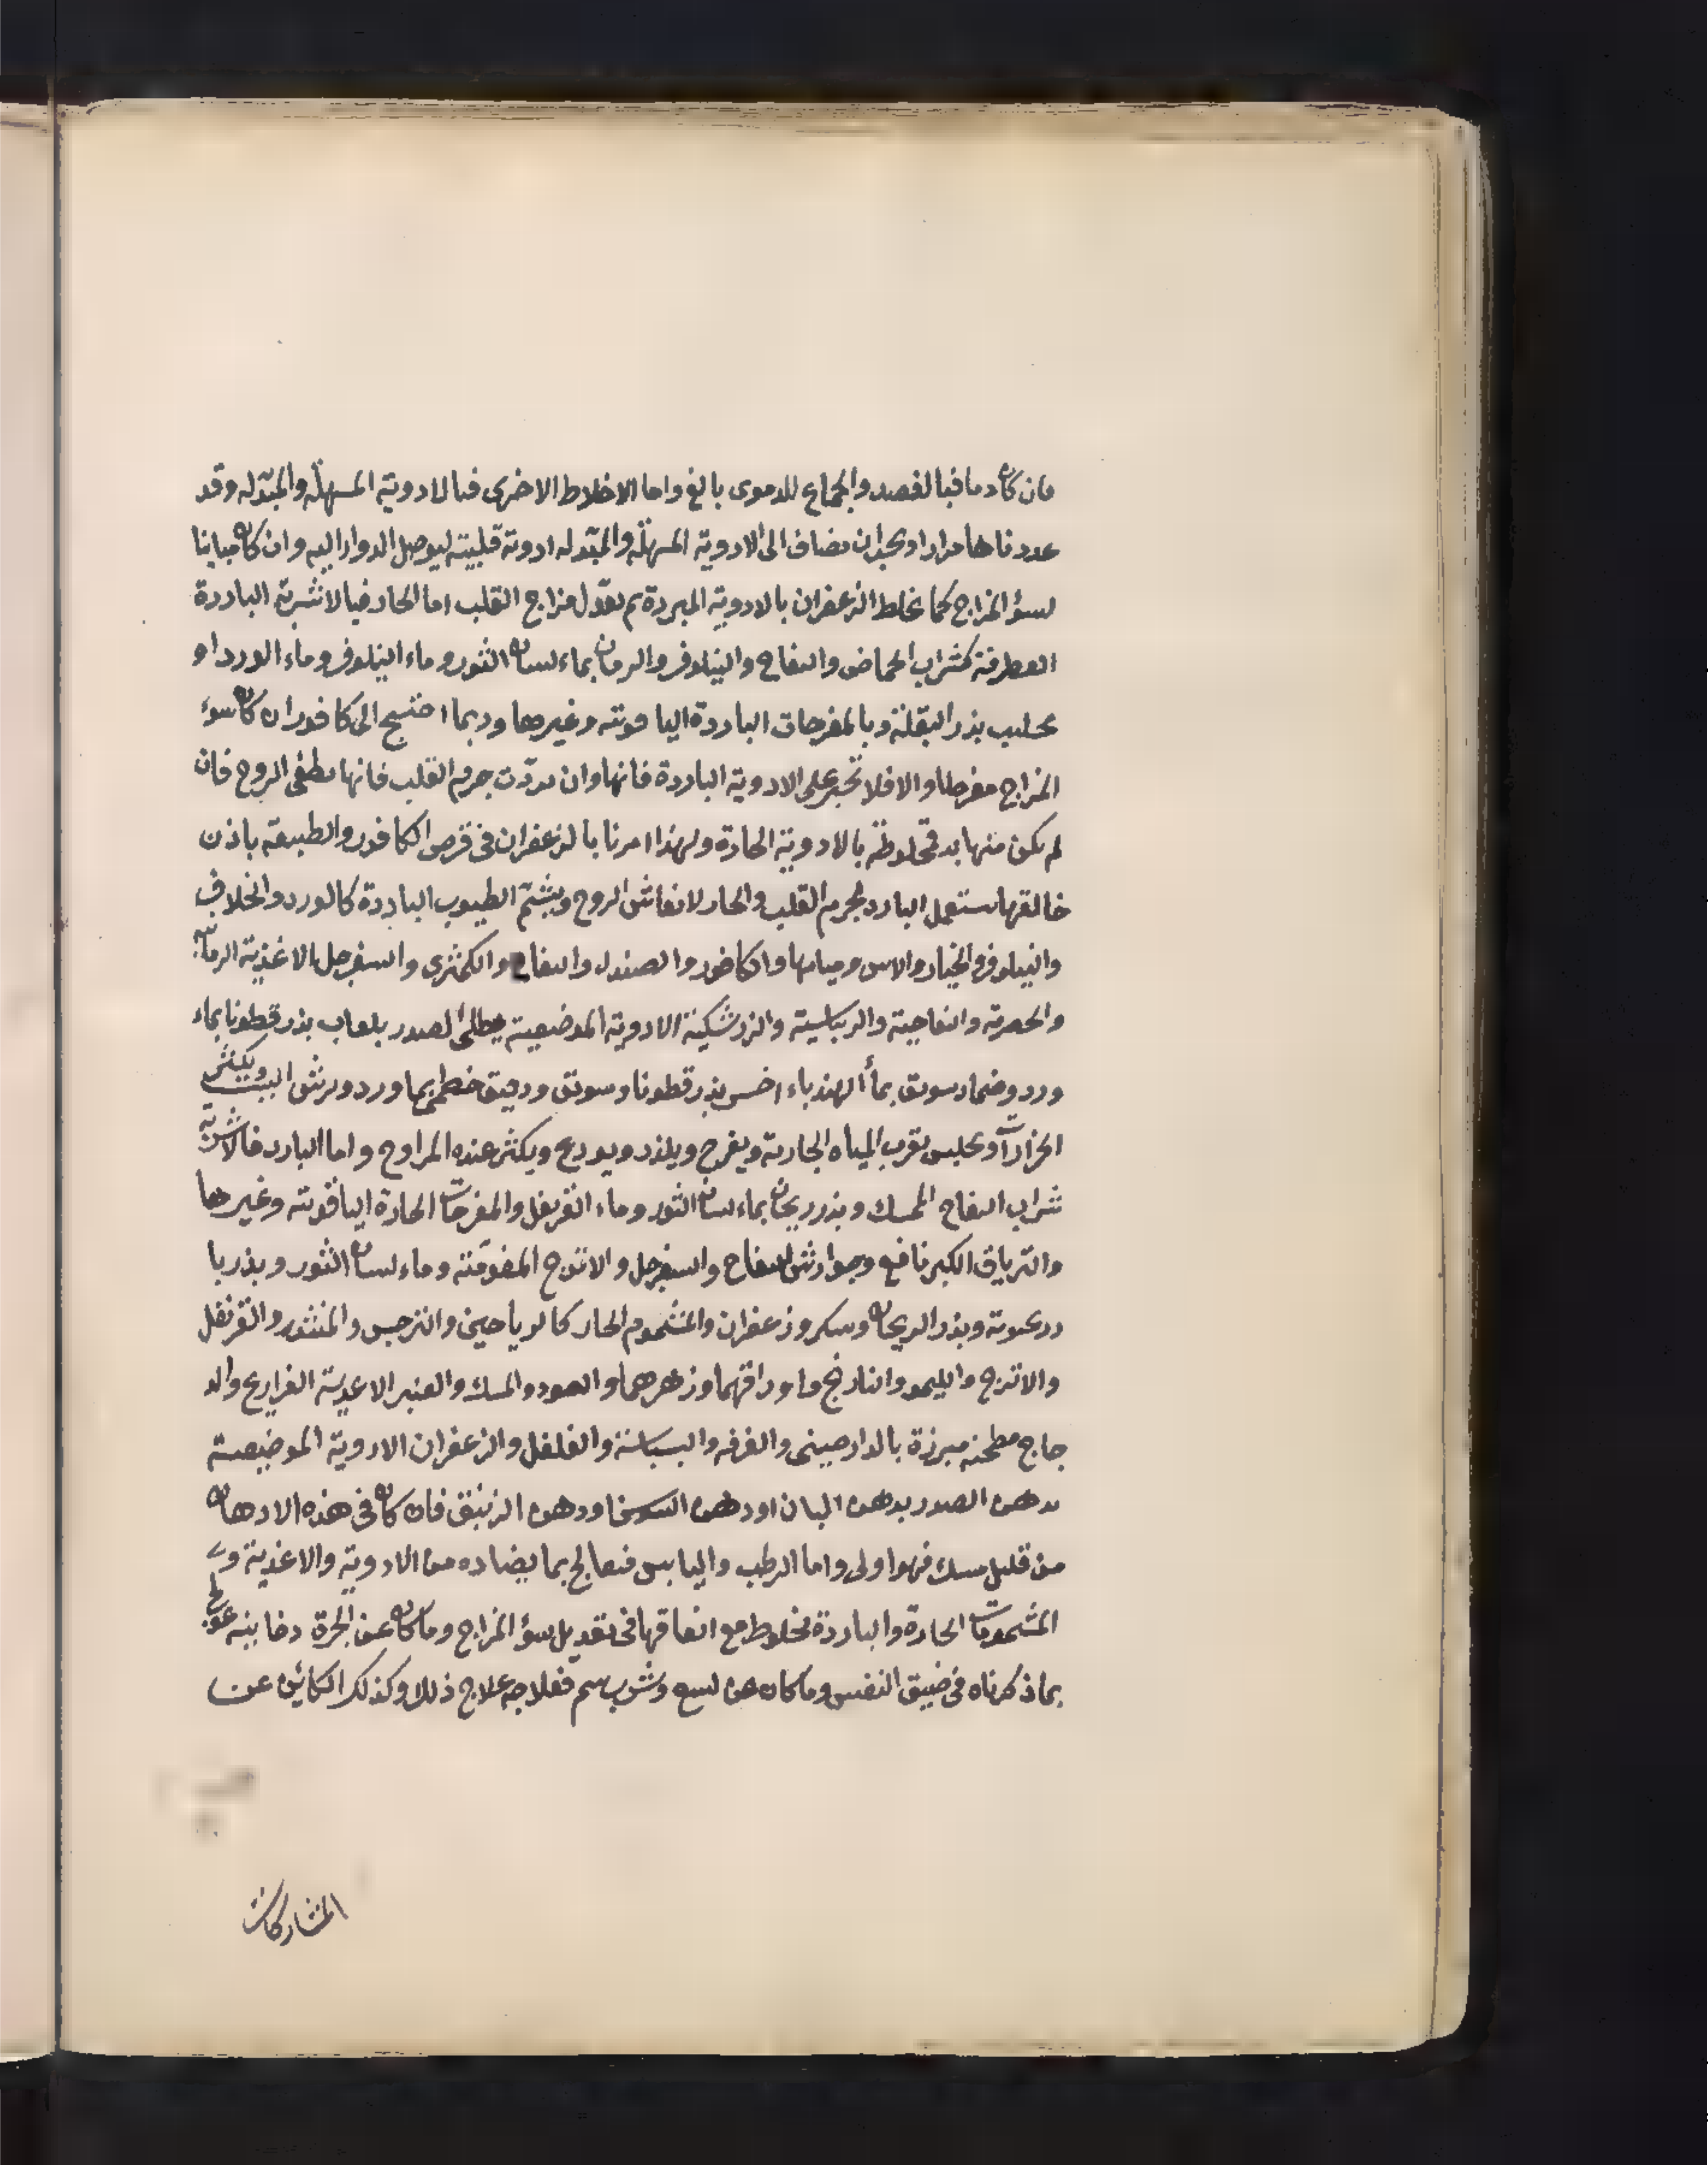 فان كان دما فبالفصد والجماع للدموى بالغ واما الاخلاط الاخرى فبالادوية المسهلة والمبدله وقد
عددناها مرارا ويجب ان يضاف الى الادوية المسهلة والمبدله ادوية قلبية ليوصل الدوا اليه وان كان مباينا
لسؤ المزاج كما يخلط الزعفران بالادوية المبردة ثم يعدّل مزاج القلب اما الحار فبالاشربة الباردة
العطرية كشراب الحماض والتفاح والنيلوفر والرمان بماء لسان الثور وماء النيلوفر وماء الورد او
بحليب بذر البقلة وبالمفرحات الباردة الياقوتيه وغيرها وربما احتيج الى كافور ان كان سوء
المزاج مفرطا والا فلا تجسر على الادوية الباردة فانها وان بردّت جرم القلب فانها تطفى الروح فان
لم يكن منها بد فمخلوطة بالادوية الحارة ولهذا امرنا بالزعفران فى قرص الكافور والطبيعة باذن
خالقها تستعمل البارد لجرم القلب والحار لانعاش الروح ويشمّ الطيوب الباردة كالورد والخلاف
والنيلوفر والخيار والاس ومياهها والكافور والصندل والتفاح والكمثرى والسفرجل الاغذية الرمانية
والحصرمية والتفاحية والريباسية والزرشكية الادوية الموضعية يطلى الصدر بلعاب بذر قطونا بماء
ورد وضماد سويق بماء الهندباء اخس بذر قطونا وسويق ودقيق خطمى بما ورد ويرش البيت ويكثر
الخرارات ويجلس بقرب المياه الجارية ويفرح ويلذذ ويودع ويكثر عنده المراوح واما البارد فالاشربة
شراب التفاح الممسك وبذر ريحان بماء لسان الثور وماء القرنفل والمفرحات الحارة الياقوتيه وغيرها
والترياق الكبير نافع وجوارش التفاح والسفرجل والاترج المفوّهة وماء لسان الثور وبذر با
درنجبويه وبذر الريحان وسكر وزعفران والمشموم الحار كالرياحين والنرجس والمنثور والقرنفل
والاترج والليمو والنارنج واوراقهما وزهرهما والعود والمسك والعنبر الاغدية الفراريج والد
جاج مطجنه مبرزة بالدارصينى والقرفه والبسباسة والفلفل والزعفران الادوية الموضيعية
يدهن الصدر بدهن البان او دهن السوسن او دهن الزنبق فان كان فى هذه الادهان
من قليل مسك فهو اولى واما الرطب واليابس فيعالج بما يضاده من الادوية والاغذية و
المشمومات الحارة والباردة مخلوط مع اتفاقها فى تعديل سؤ المزاج وما كان عن ابخرة دخانيه عولج
بما ذكرناه فى ضيق النفس وما كان من لسع وشرب سم فعلاجه علاج ذلك وكذلك الكائن عن
المشاركات